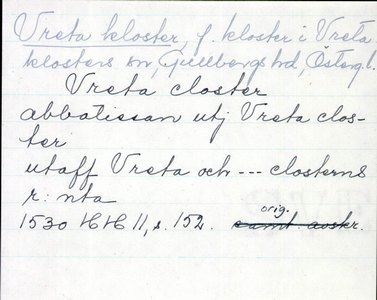 Vreta kloster, f. kloster i Vreta
klosters sn, Gullbergs hd, Östergl.
Vreta closter
abbatissan utj Vreta clos-
ter
utaff Vreta och --- closterns
r:nta
1530 HH 11, s. 152. orig.
samt avskr.